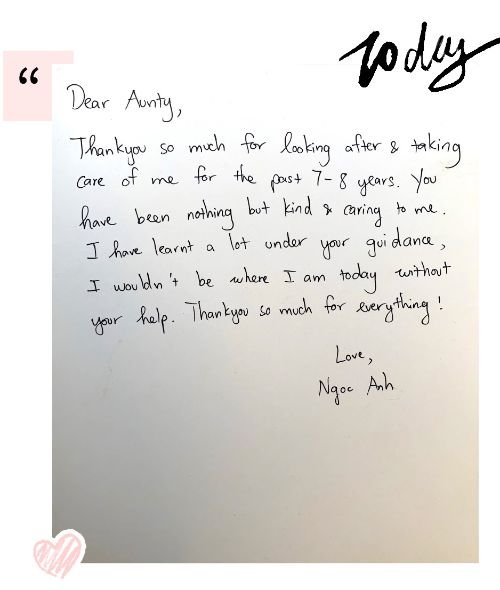 today
“
Dear Aunty,
Thankyou so much for looking after & taking
care of me for the past 7-8 years. You
have been nothing but kind & caring to me.
I have learnt a lot under your guidance,
I wouldn't be where I am today without
your help. Thankyou so much for everything!
Love,
Ngoc Anh